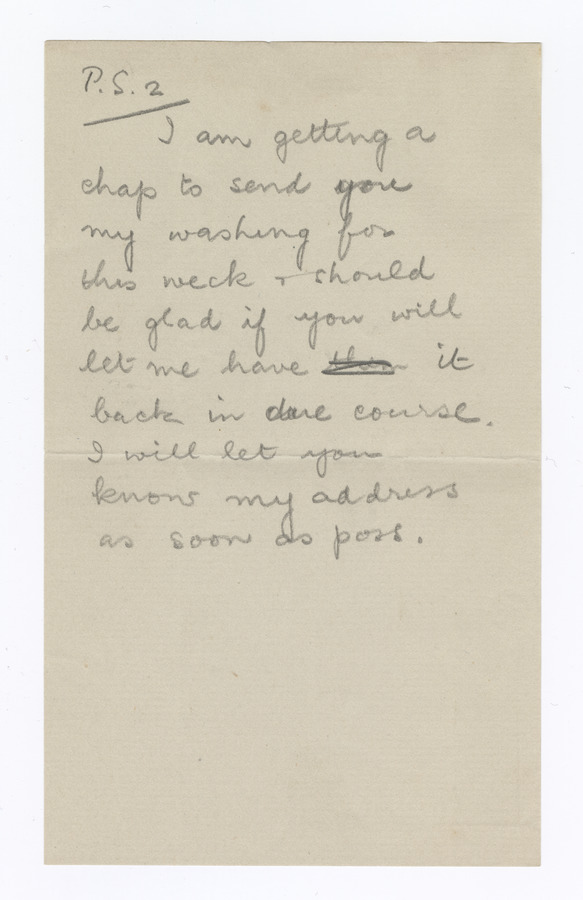 P.S. 2
I am getting a
chap to send you
my washing for
this week & should
be glad if you will
let me have them it
back in due course.
I will let you
know my address
as soon as poss.